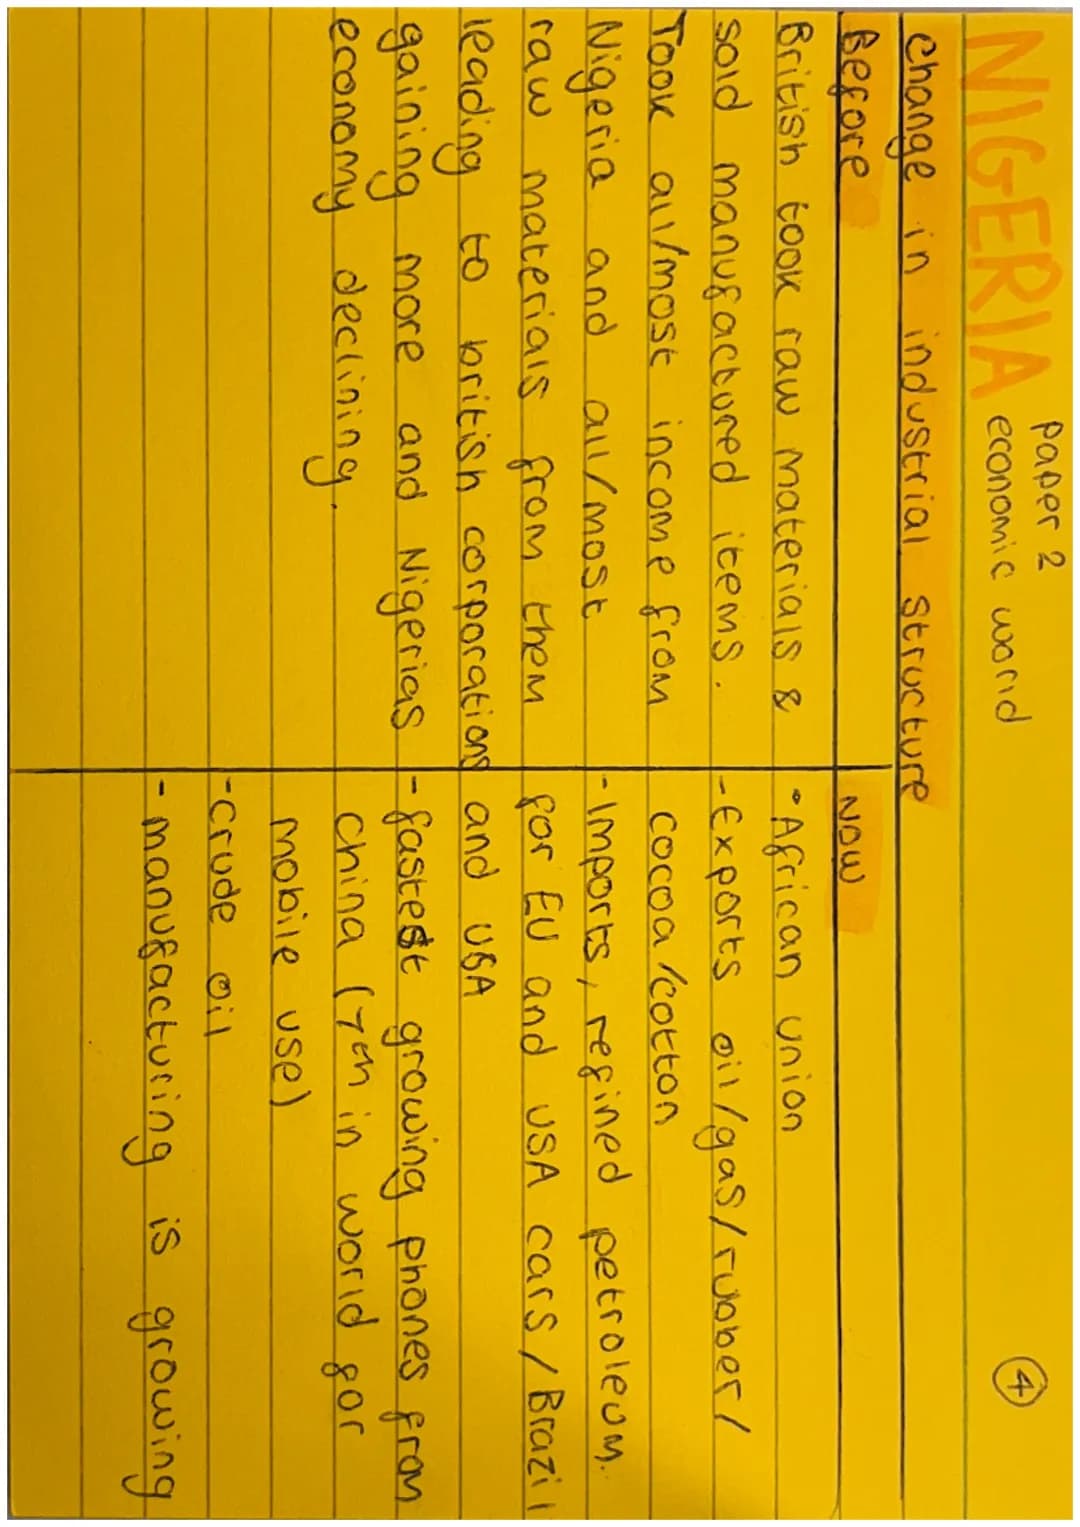 NIGERIA
paper 2
economic world
4
change in industrial structure
Before
British took raw materials &
sold manufactured items.
Took all/most income from
Nigeria and all/most
raw materials from them
leading to british corporations
gaining more and Nigerias
economy declining.
NOW
• African union
- Exports oil/gas/rubber/
cocoa/cotton
- Imports, refined petroleum.
for EU and USA cars/Brazil
and USA
- fastest growing phones from
china (7th in world for
mobile use)
- crude oil
- manufacturing is growing